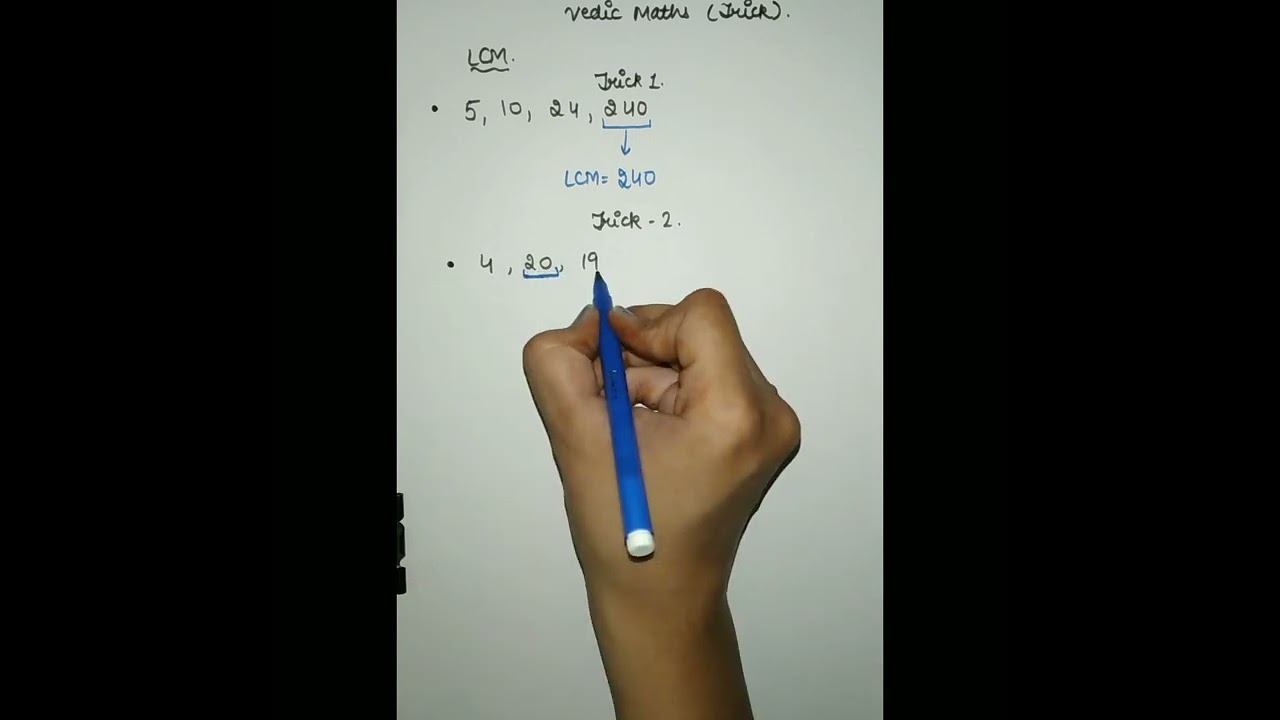 Vedic Maths (Trick).
LCM.
Trick 1.
• 5, 10, 24, 240
LCM= 240
Trick - 2.
• 4, 20, 19